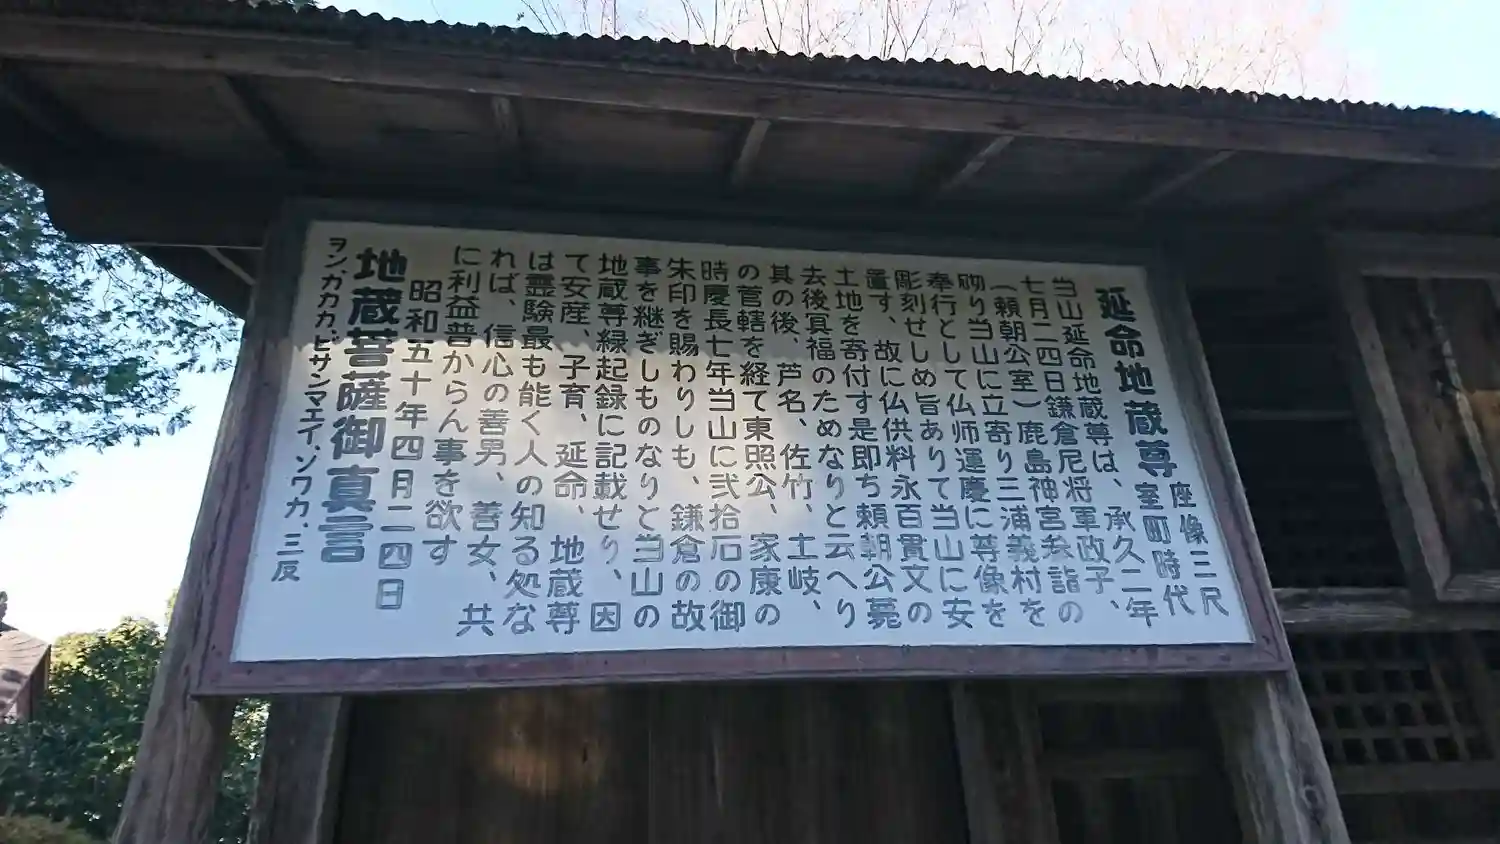 延命地蔵尊
座像三尺
室町時代
当山延命地蔵尊は、承久二年
七月二四日鎌倉尼将軍政子、
(頼朝公室)鹿島神宮参詣の
砌り当山に立寄り三浦義村を
奉行として仏师運慶に尊像を
彫刻せしめ旨ありて当山に安
置す、故に仏供料永百貫文の
土地を寄付す是即ち頼朝公薨
去後冥福のためなりと云へり
其の後、芦名、佐竹、土岐、
の菅轄を経て東照公、家康の
時慶長七年当山に弐拾石の御
朱印を賜わりしも、鎌倉の故
事を継ぎしものなりと当山の
地蔵尊縁起録に記載せり、因
て安産、子育、延命、地蔵尊
は霊験最も能く人の知る処な
れば、信心の善男、善女、共
に利益普からん事を欲す
昭和五十年四月二四日
地蔵菩薩御真言
ヲン、カカカ、ビサンマエイ、ソワカ、三反